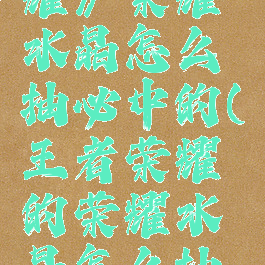 耀》荣耀
水晶怎么
抽必中的(
王者荣耀
的荣耀水
晶怎么抽